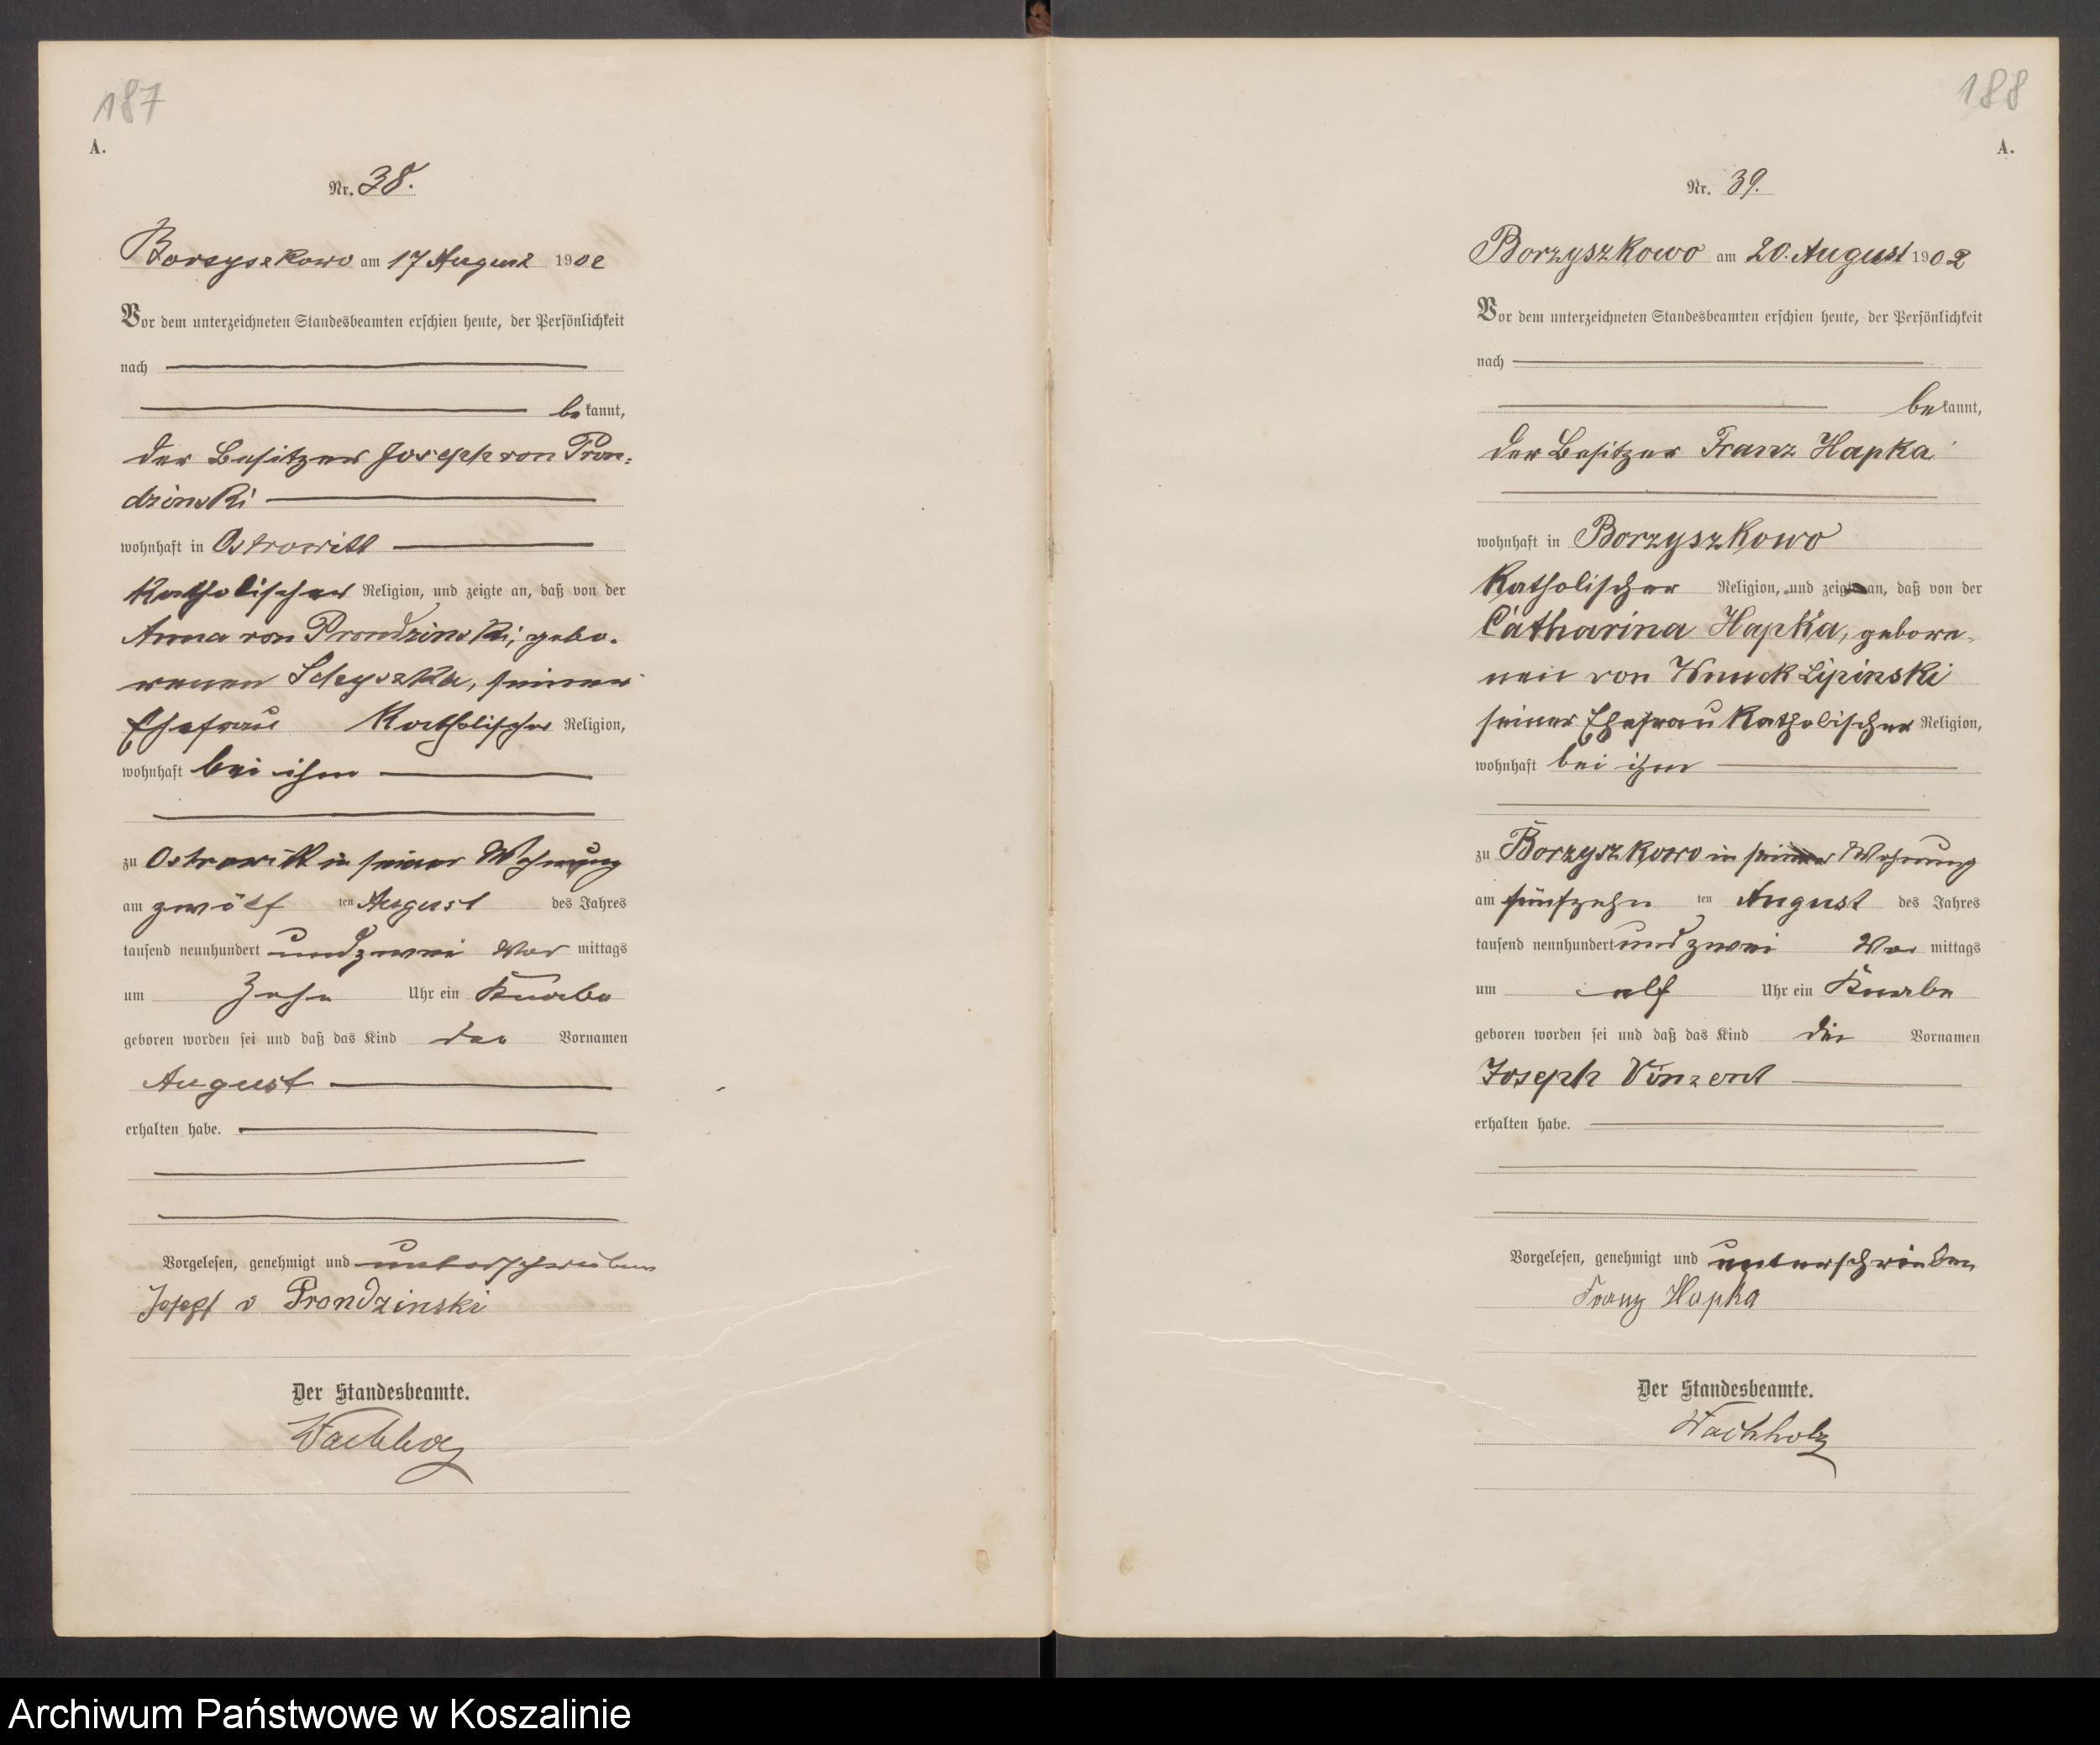 187
A.
Nr. 38.
Borzyszkowo am 17 August 1902
Vor dem unterzeichneten Standesbeamten erschien heute, der Persönlichkeit
nach
bekannt,
der Besitzer Joseph von Pron-
dzinski
wohnhaft in Ostrowitt
katholischer Religion, und zeigte an, daß von der
Anna von Prondzinski, gebo-
renen
seiner
Ehefrau katholischer Religion,
wohnhaft bei ihm
zu Ostrowitt in seiner Wohnung
am zwölf ten August des Jahres
tausend neunhundert und zwei Vor mittags
um Zehn Uhr ein Knabe
geboren worden sei und daß das Kind den Vornamen
August
erhalten habe.
Vorgelesen, genehmigt und unterschrieben
Joseph v Prondzinski
Der Standesbeamte.
Wachholz
188
A.
Nr. 39.
Borzyszkowo am 20. August 1902
Vor dem unterzeichneten Standesbeamten erschien heute, der Persönlichkeit
nach
bekannt,
der Besitzer Franz Hapka
wohnhaft in Borzyszkowo
katholischer Religion, und zeigte an, daß von der
Catharina Hapka, gebore-
nen von Wnuck Lipinski
seiner Ehefrau katholischer Religion,
wohnhaft bei ihm
zu Borzyszkowo in seiner Wohnung
am fünfzehn ten August des Jahres
tausend neunhundert und zwei Vor mittags
um elf Uhr ein Knabe
geboren worden sei und daß das Kind die Vornamen
Joseph Vinzent
erhalten habe.
Vorgelesen, genehmigt und unterschrieben
Franz Hapka
Der Standesbeamte.
Wachholz
Archiwum Państwowe w Koszalinie